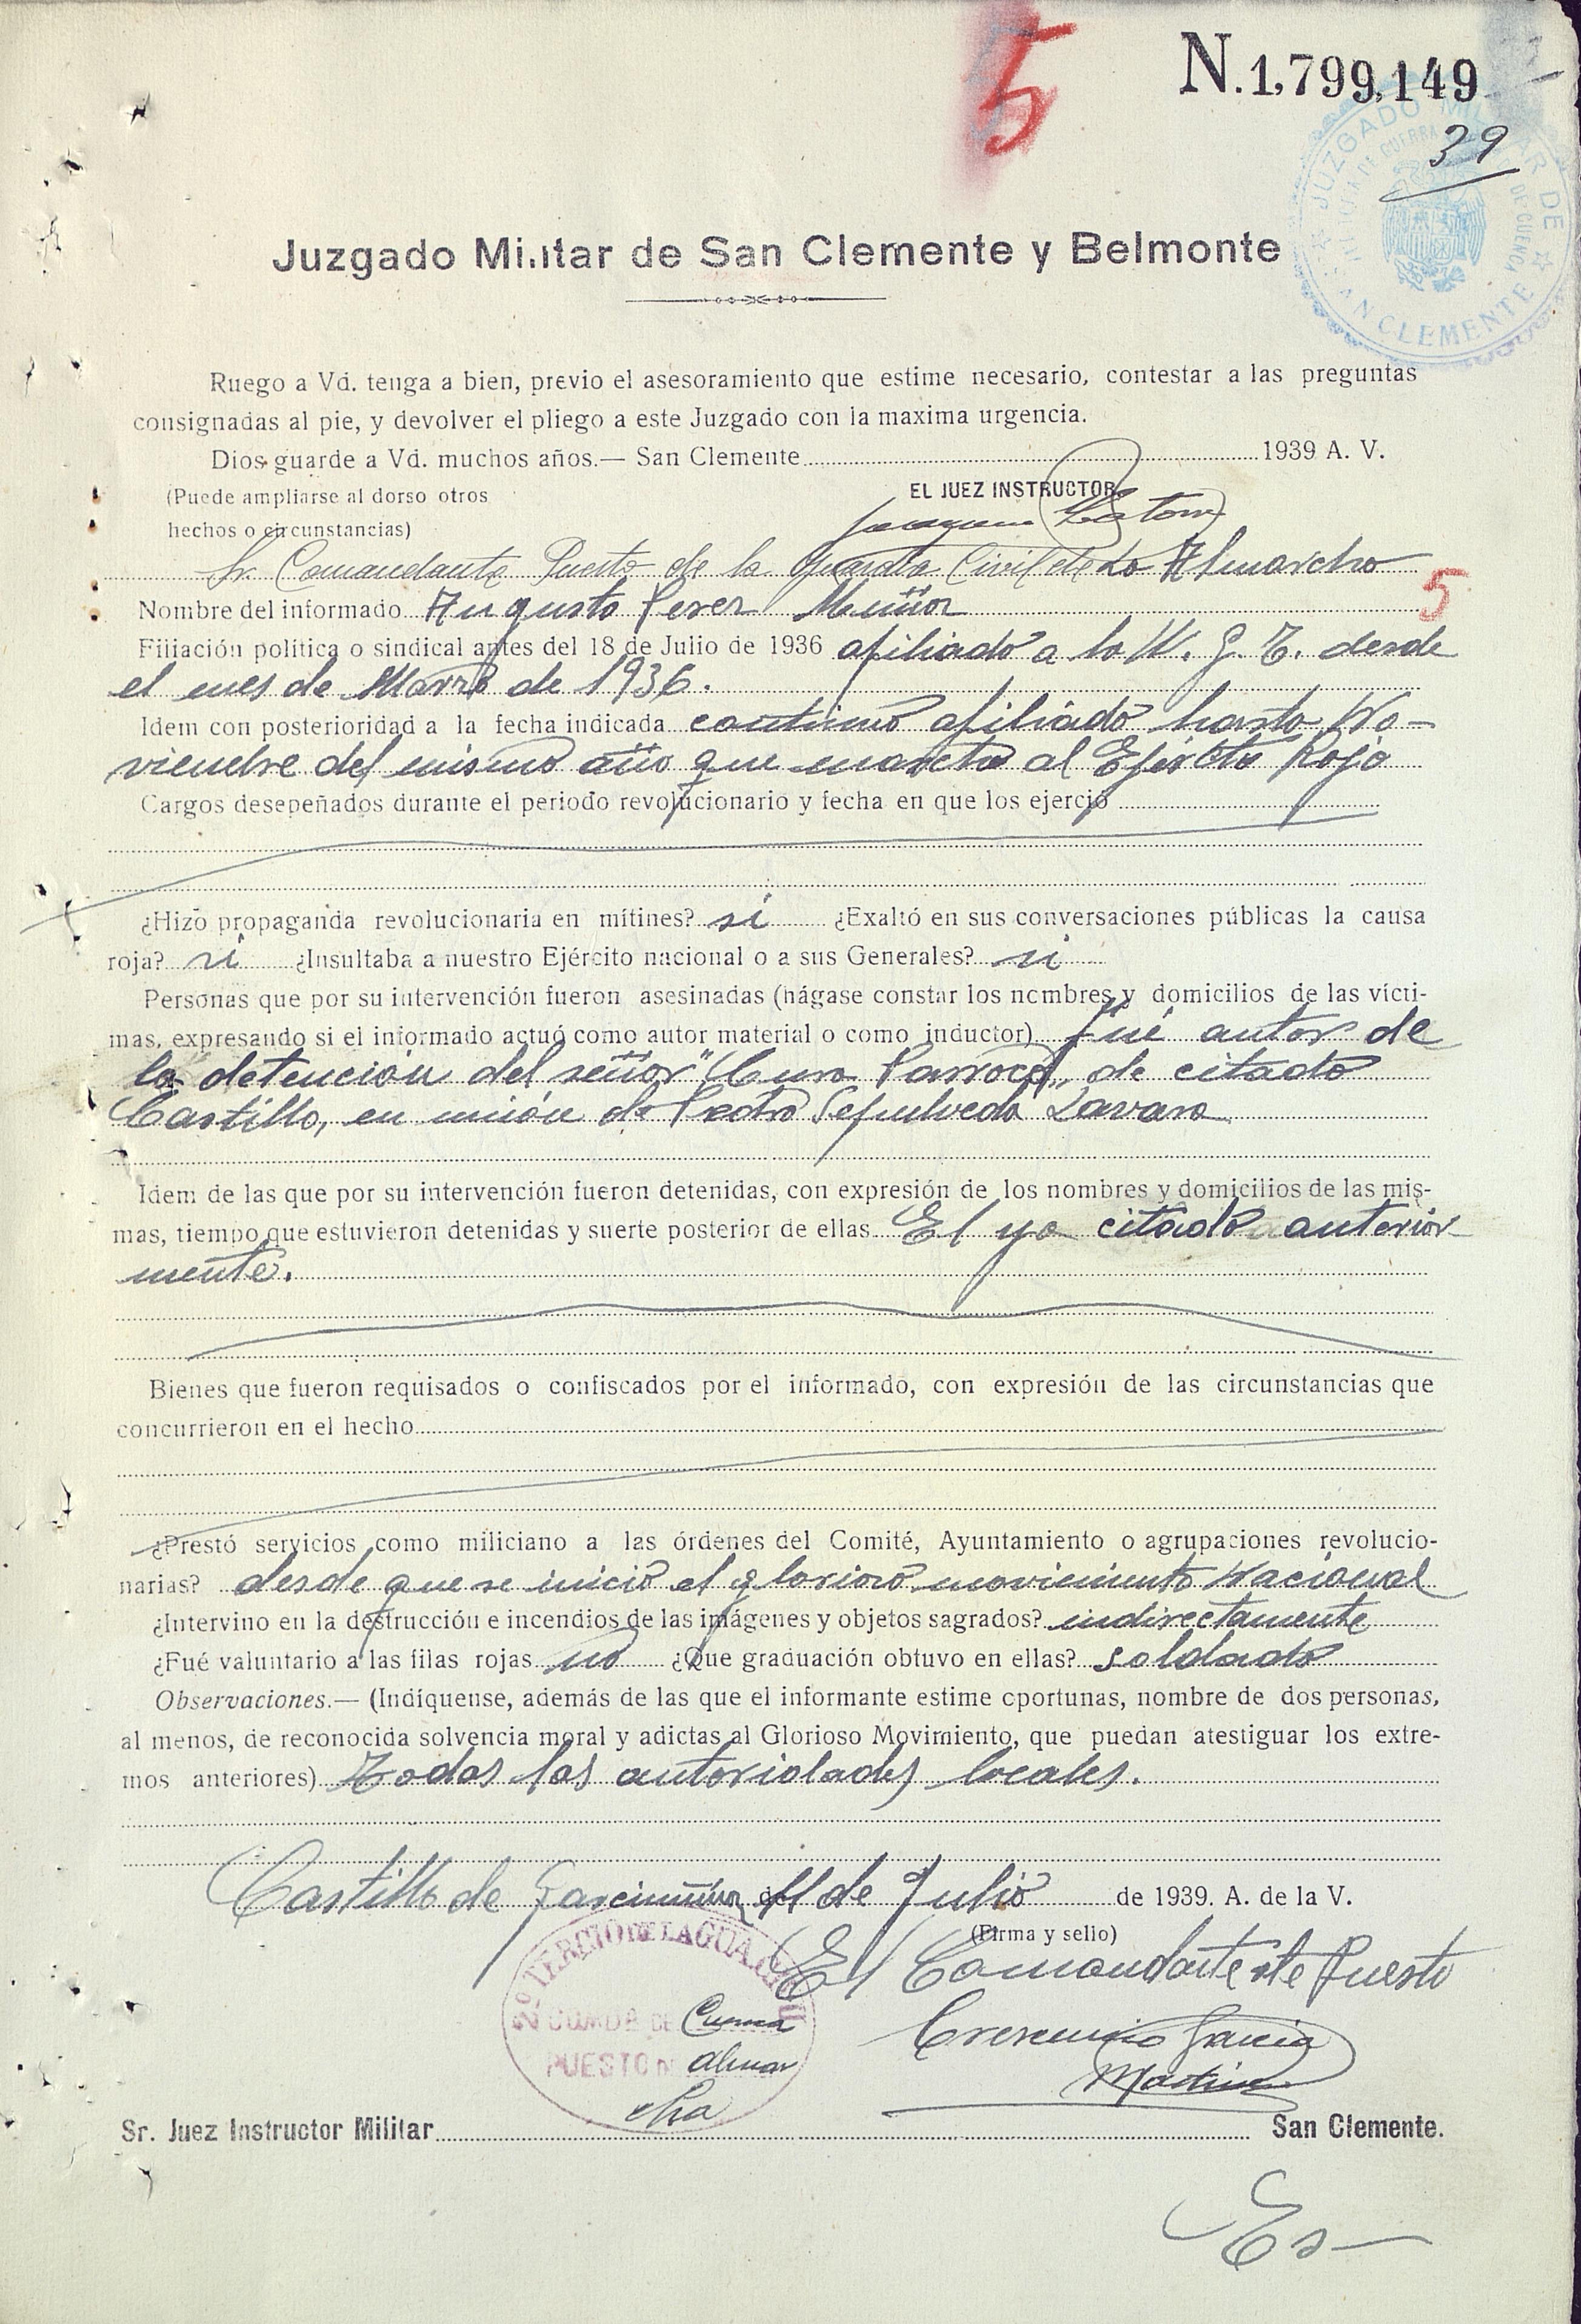 5
N.1,799,149
39
JUZGADO MILITAR DE
SAN CLEMENTE
DE CUENCA
Juzgado Militar de San Clemente y Belmonte
Ruego a Vd. tenga a bien, previo el asesoramiento que estime necesario, contestar a las preguntas
consignadas al pie, y devolver el pliego a este Juzgado con la maxima urgencia.
Dios guarde a Vd. muchos años.— San Clemente 1939 A. V.
(Puede ampliarse al dorso otros
hechos o circunstancias)
EL JUEZ INSTRUCTOR
Sr. Comandante Puesto de la Guardia Civil de La Almarcha
Nombre del informado Augusto Perez Muñoz 5
Filiación política o sindical antes del 18 de Julio de 1936 afiliado a la U. G. T. desde
el mes de Marzo de 1936.
Idem con posterioridad a la fecha indicada continuó afiliado hasta No-
viembre del mismo año que marcho al Ejército Rojo
Cargos desepeñados durante el periodo revolucionario y fecha en que los ejerció
¿Hizo propaganda revolucionaria en mítines? si ¿Exaltó en sus conversaciones públicas la causa
roja? si ¿Insultaba a nuestro Ejército nacional o a sus Generales? si
Personas que por su intervención fueron asesinadas (hágase constar los nombres y domicilios de las vícti-
mas, expresando si el informado actuó como autor material o como inductor) fué autor de
la detención del señor "Cura Parroco" de citado
Castillo, en unión de Pedro Sepulveda Lavara
Idem de las que por su intervención fueron detenidas, con expresión de los nombres y domicilios de las mis-
mas, tiempo que estuvieron detenidas y suerte posterior de ellas El ya citado anterior
mente.
Bienes que fueron requisados o confiscados por el informado, con expresión de las circunstancias que
concurrieron en el hecho
¿Prestó servicios como miliciano a las órdenes del Comité, Ayuntamiento o agrupaciones revolucio-
narias? desde que se inició el glorioso movimiento Nacional
¿Intervino en la destrucción e incendios de las imágenes y objetos sagrados? indirectamente
¿Fué valuntario a las filas rojas no ¿Que graduación obtuvo en ellas? soldado
Observaciones.— (Indíquense, además de las que el informante estime oportunas, nombre de dos personas,
al menos, de reconocida solvencia moral y adictas al Glorioso Movimiento, que puedan atestiguar los extre-
mos anteriores) Todas las autoridades locales.
Castillo de Garcimuñoz de 11 de Julio de 1939. A. de la V.
(Firma y sello)
El Comandante de Puesto
Crescencio Garcia
Martinez
COMDª DE Cuenca
PUESTO DE Almar
cha
Sr. Juez Instructor Militar San Clemente.